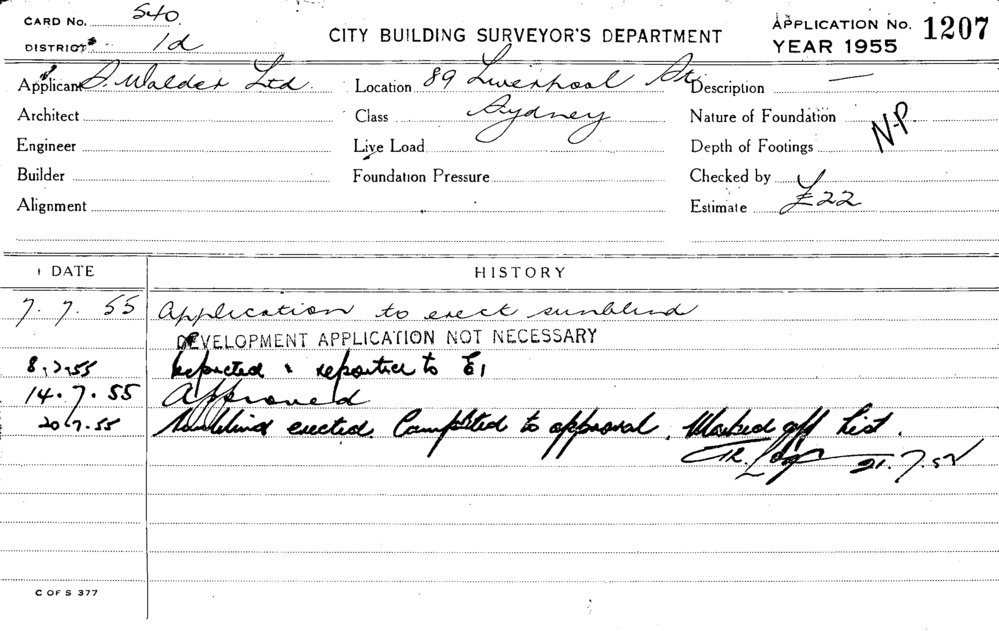 CARD No. 540
DISTRICT 1d
CITY BUILDING SURVEYOR'S DEPARTMENT
APPLICATION No. 1207
YEAR 1955
Applicant S. Walder Ltd.
Location 89 Liverpool St.
Description —
Architect
Class Sydney
Nature of Foundation
Engineer
Live Load
Depth of Footings N.P.
Builder
Foundation Pressure
Checked by
Alignment
Estimate £22
DATE HISTORY
7. 7. 55 Application to erect sunblind
DEVELOPMENT APPLICATION NOT NECESSARY
8.7.55 Inspected & reported to E1
14.7.55 Approved
20.7.55 Sunblind erected. Completed to approval. Marked off List.
21.7.55
C OF S 377